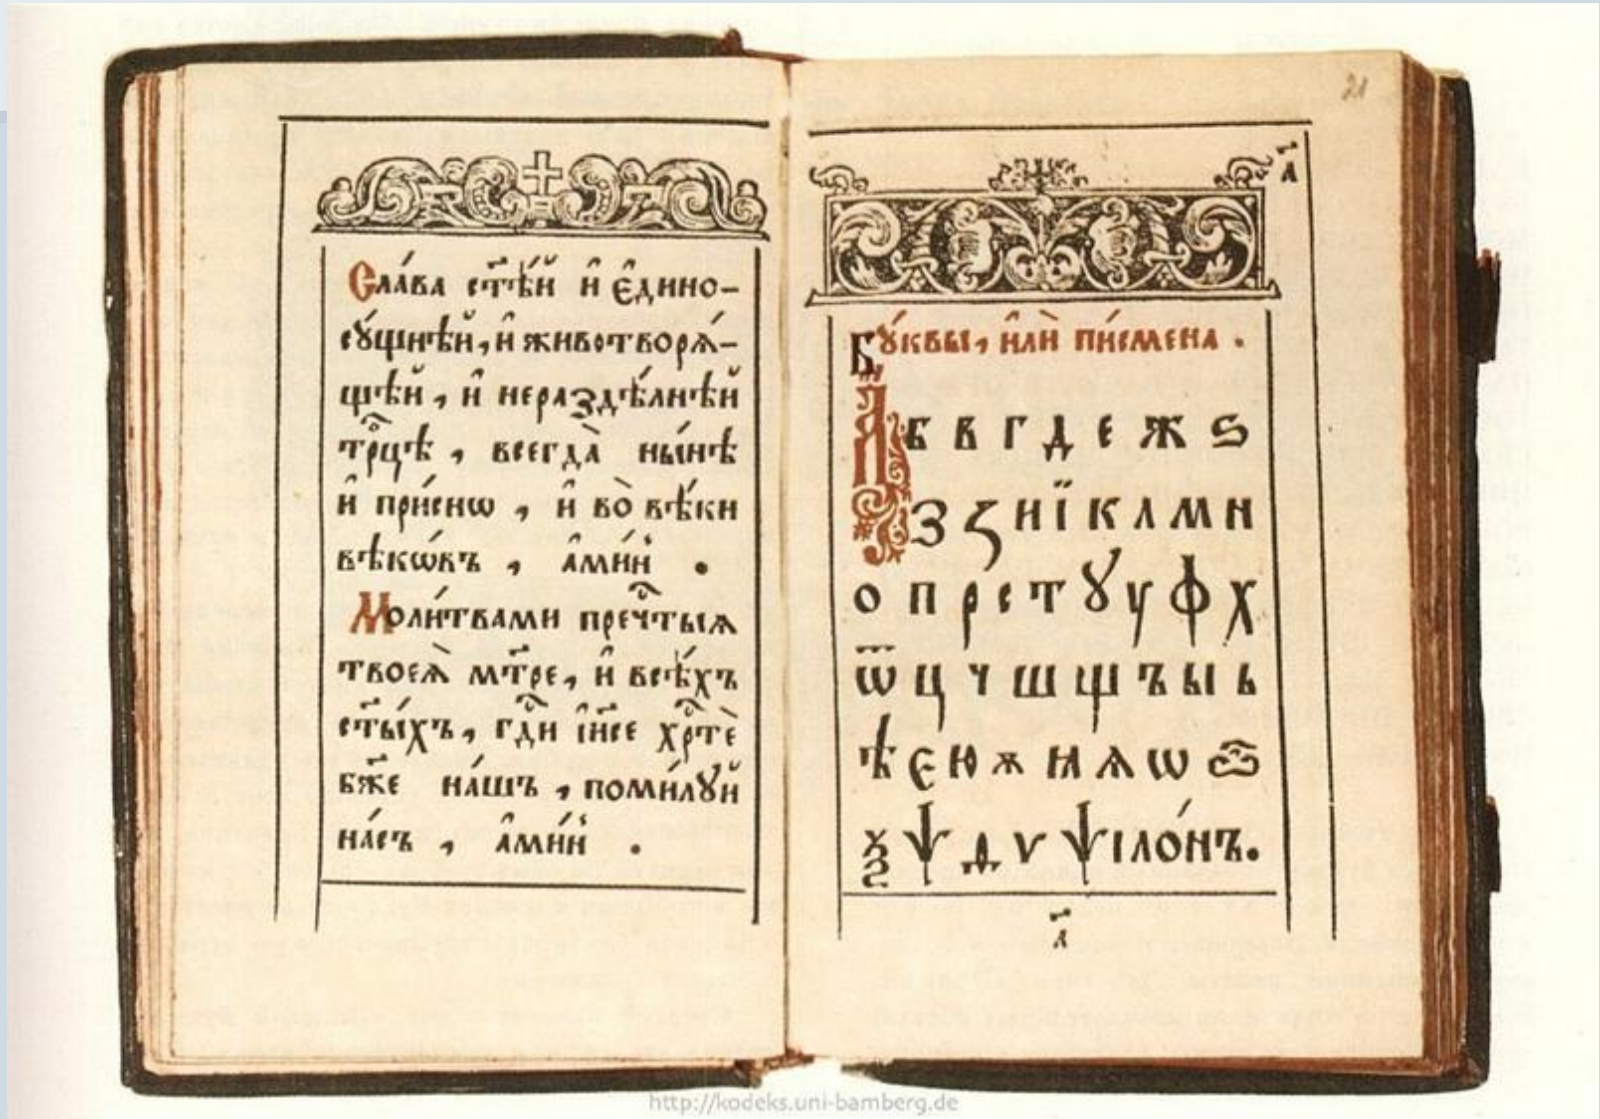 Сла́ва ст҃ѣ́й и҆ є҆дино-
сꙋ́щнѣй, и҆ животворѧ́-
щѣй, и҆ нераздѣ́лнѣй
трⷪ҇цѣ, всегда̀ ны́нѣ
и҆ при́снѡ, и҆ во̀ вѣ́ки
вѣкѡ́въ, а҆ми́нь.
Моли́твами пречⷭ҇тыѧ
твоеѧ̀ мт҃ре, и҆ всѣ́хъ
ст҃ы́хъ, гдⷭ҇и і҆и҃се хрⷭ҇тѐ
бж҃е на́шъ, поми́лꙋй
на́съ, а҆ми́нь.
21
а҃
Бꙋ́квы, и҆лѝ пи́смена.
А б в г д е ж ѕ
З ꙁ и ї к л м н
о п р с т ꙋ у ф х
ѿ ц ч ш щ ъ ы ь
ѣ є ю ѫ ꙗ ѧ ѡ ѽ
ѯ ѱ ѳ ѵ ѱіло́нъ.
а҃
http://kodeks.uni-bamberg.de